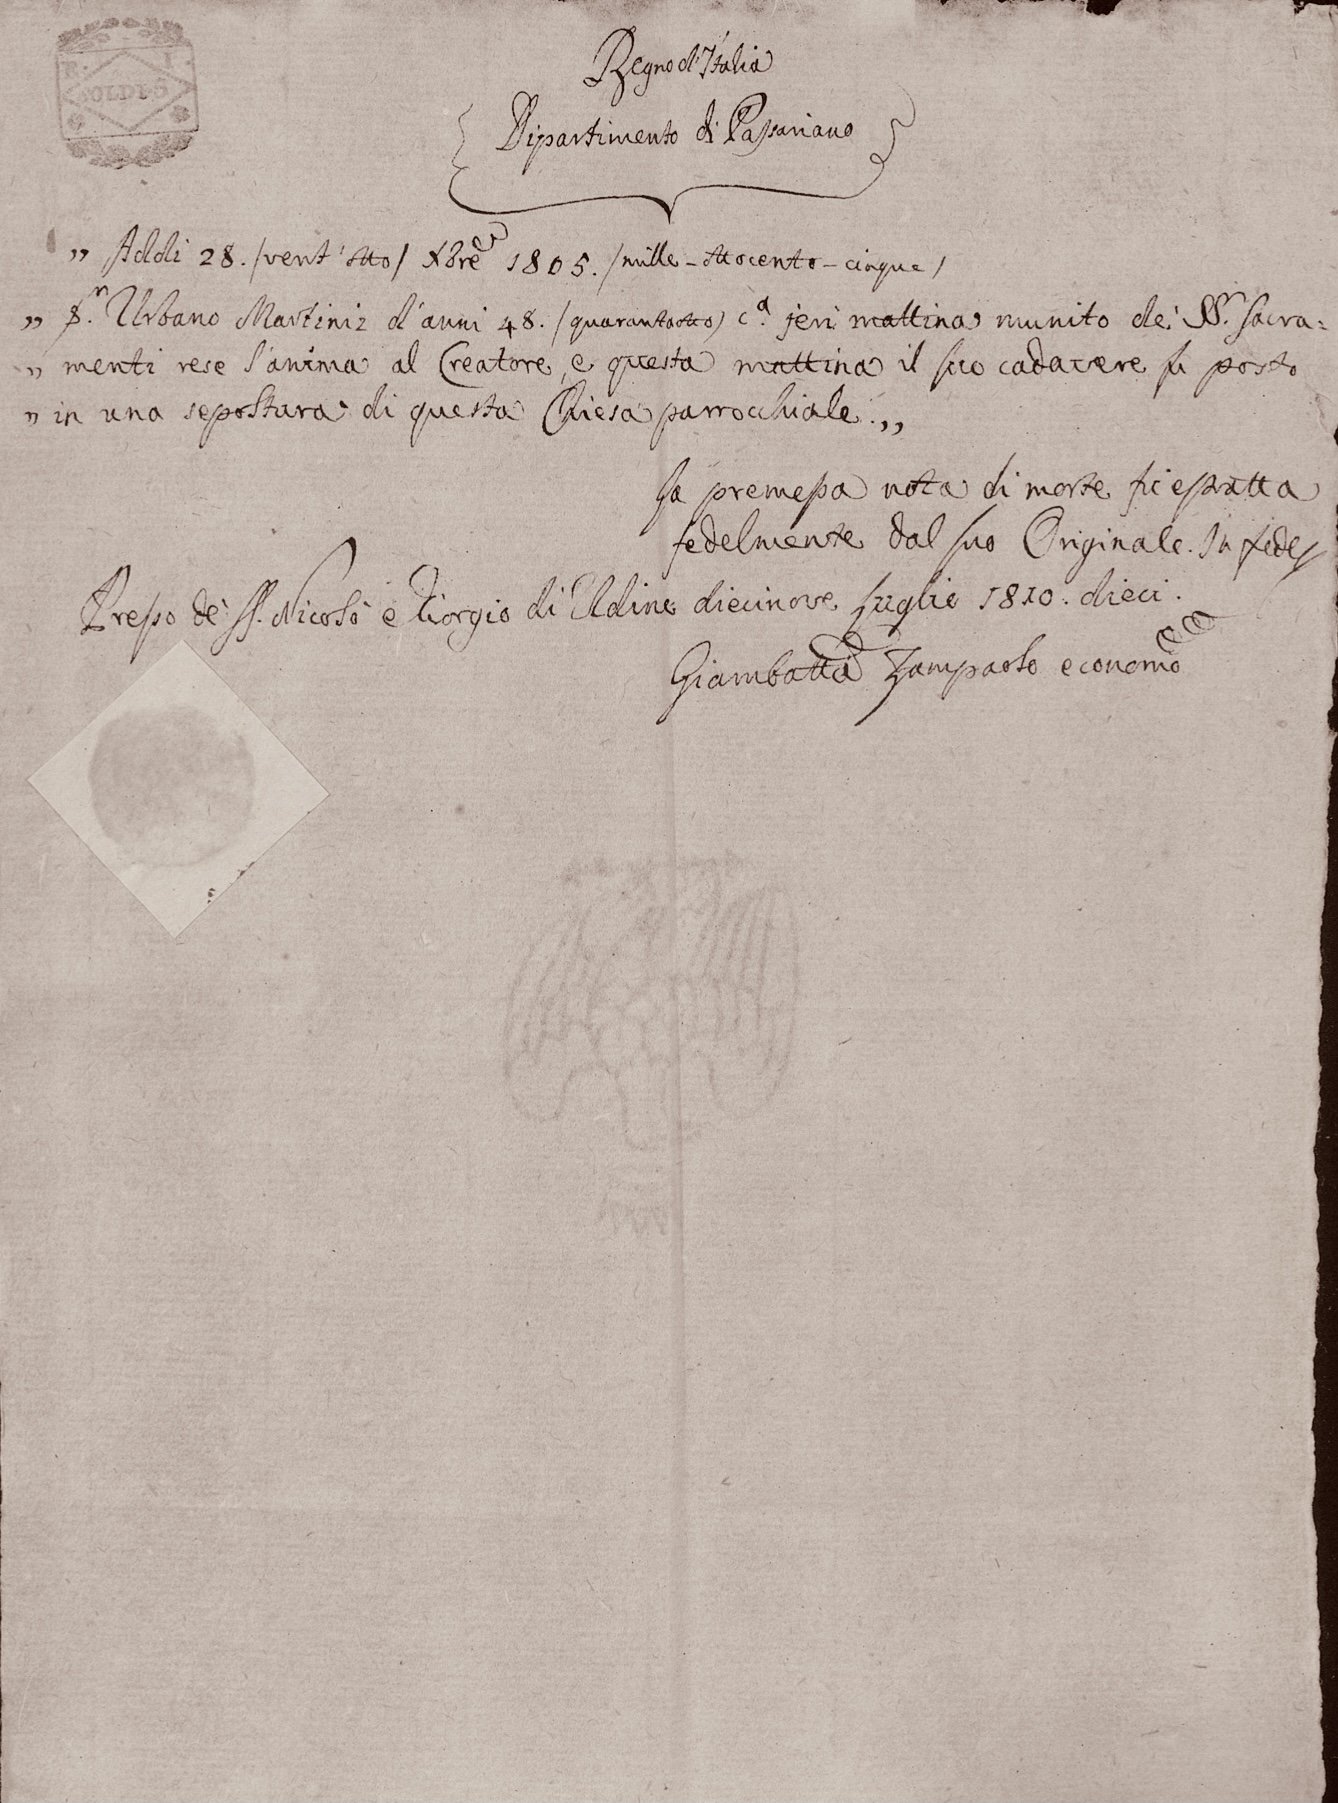 R. I.
SOLDI 5
Regno d'Italia
Dipartimento di Passariano
„ Addi 28. /vent'otto/ Xbre 1805. /mille-ottocento-cinque/
„ Urbano Martiniz d'anni 48. /quarantaotto/ c.a jeri mattina munito de' SS. Sacra=
„ menti rese l'anima al Creatore, e questa mattina il suo cadavere fu posto
„ in una sepoltura di questa Chiesa parrocchiale.„
La premessa nota di morte fu estratta
fedelmente dal suo Originale. In fede
Presso de' SS. Nicolò e Giorgio di Udine diecinove Luglio 1810. dieci.
Giambatta Zampaolo economo